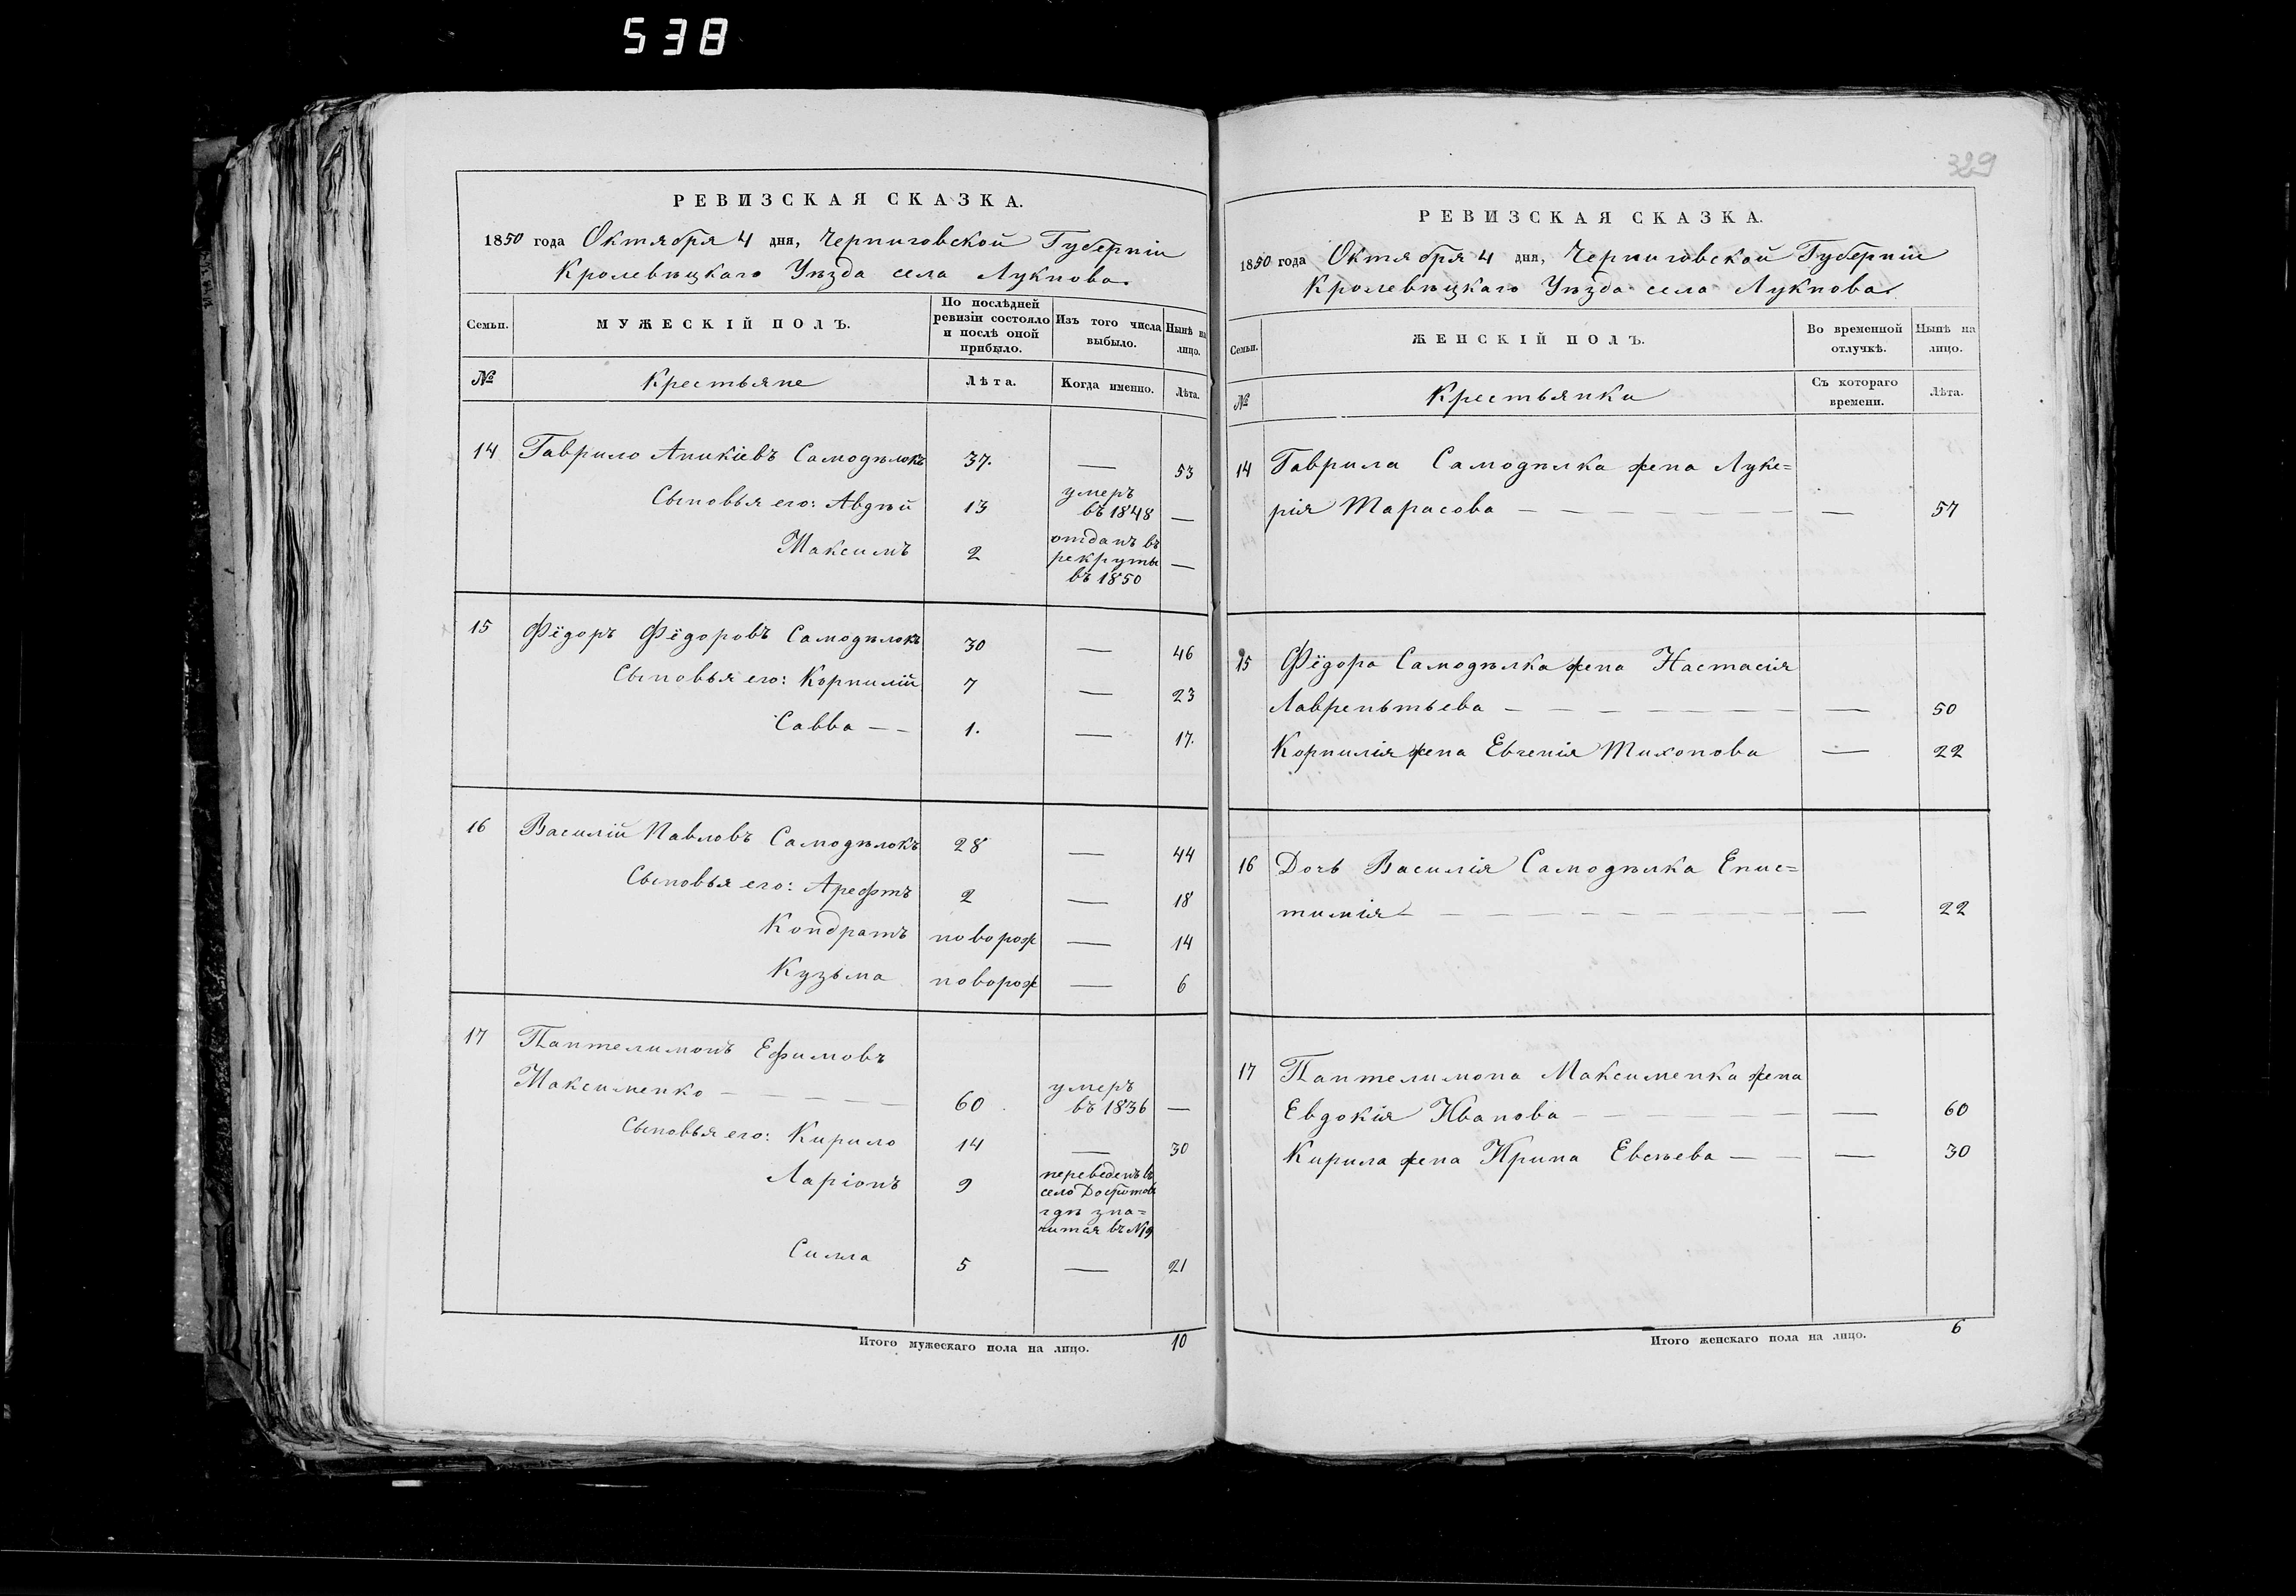 538
329
РЕВИЗСКАЯ СКАЗКА.
1850 года Октября 4 дня, Черниговской Губернiи
Кролевѣцкаго Уѣзда села Лукнова.
Семьи.
МУЖЕСКIЙ ПОЛЪ.
По послѣдней
ревизiи состояло
и послѣ оной
прибыло.
Изъ того числа
выбыло.
Нынѣ на
лицо.
№
Крестьяне
Лѣта.
Когда именно.
Лѣта.
14 Гаврило Аникiевъ Самодѣлокъ 37. — 53
Сыновья его: Авдѣй 13 умеръ
въ 1848 —
Максимъ 2 отданъ въ
рекруты —
въ 1850
15 Фёдоръ Фёдоровъ Самодѣлокъ 30 — 46
Сыновья его: Корнилiй 7 — 23
Савва — – 1. — 17.
16 Василiй Павловъ Самодѣлокъ 28 — 44
Сыновья его: Арефтъ 2 — 18
Кондратъ новорож — 14
Кузьма новорож — 6
17 Пантелимонъ Ефимовъ
Максименко — — — — — 60 умеръ
въ 1836 —
Сыновья его: Кирило 14 — 30
Ларiонъ 9 переведенъ въ
село
гдѣ зна=
чится въ №9
Силла 5 — 21
Итого мужескаго пола на лицо. 10
РЕВИЗСКАЯ СКАЗКА.
1850 года Октября 4 дня, Черниговской Губернiи
Кролевѣцкаго Уѣзда села Лукнова.
Семьи.
ЖЕНСКIЙ ПОЛЪ.
Во временной
отлучкѣ.
Нынѣ на
лицо.
№
Крестьянки
Съ котораго
времени.
Лѣта.
14 Гаврила Самодѣлка жена Луке=
рiя Тарасова — — — — — — — — 57
15 Фёдора Самодѣлка жена Настасiя
Лаврентьева — — — — — — — — 50
Корнилiя жена Евгенiя Тихонова — 22
16 Дочь Василiя Самодѣлка Епис=
тимiя — — — — — — — — — — 22
17 Пантелимона Максименка жена
Евдокiя Иванова — — — — — — — 60
Кирила жена Ирина Евсѣева — — — 30
Итого женскаго пола на лицо. 6